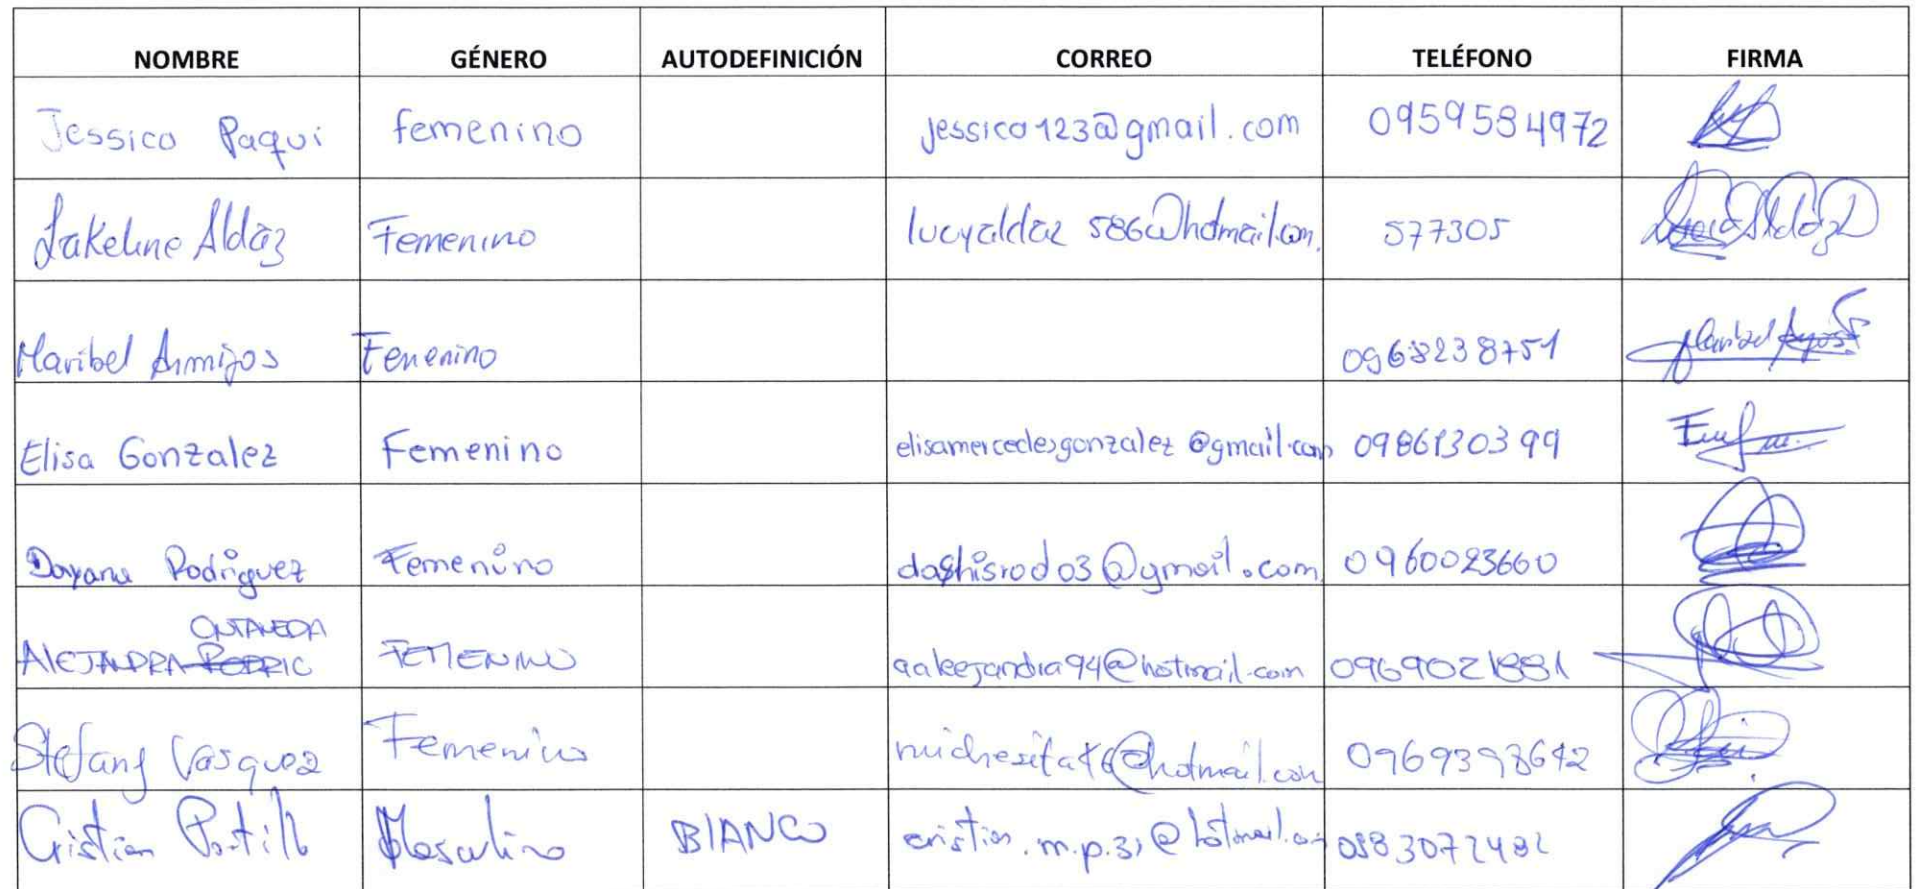 NOMBRE GÉNERO AUTODEFINICIÓN CORREO TELÉFONO FIRMA
Jessica Paqui femenino jessica123@gmail.com 0959584972
Jakeline Aldaz Femenino lucyaldaz586@hotmail.com. 577305
Maribel Armijos Femenino 0968238751
Elisa Gonzalez Femenino elisamercedesgonzalez@gmail.com 0986130399
Dayana Rodriguez Femenino dashisrod03@gmail.com 0960023660
ONTANEDA
ALEJANDRA FEMENINO aaleejandra94@hotmail.com 0969021881
Stefany Vasquez Femenino
Cristian Portillo Masculino BLANCO cristian.m.p.31@hotmail.com